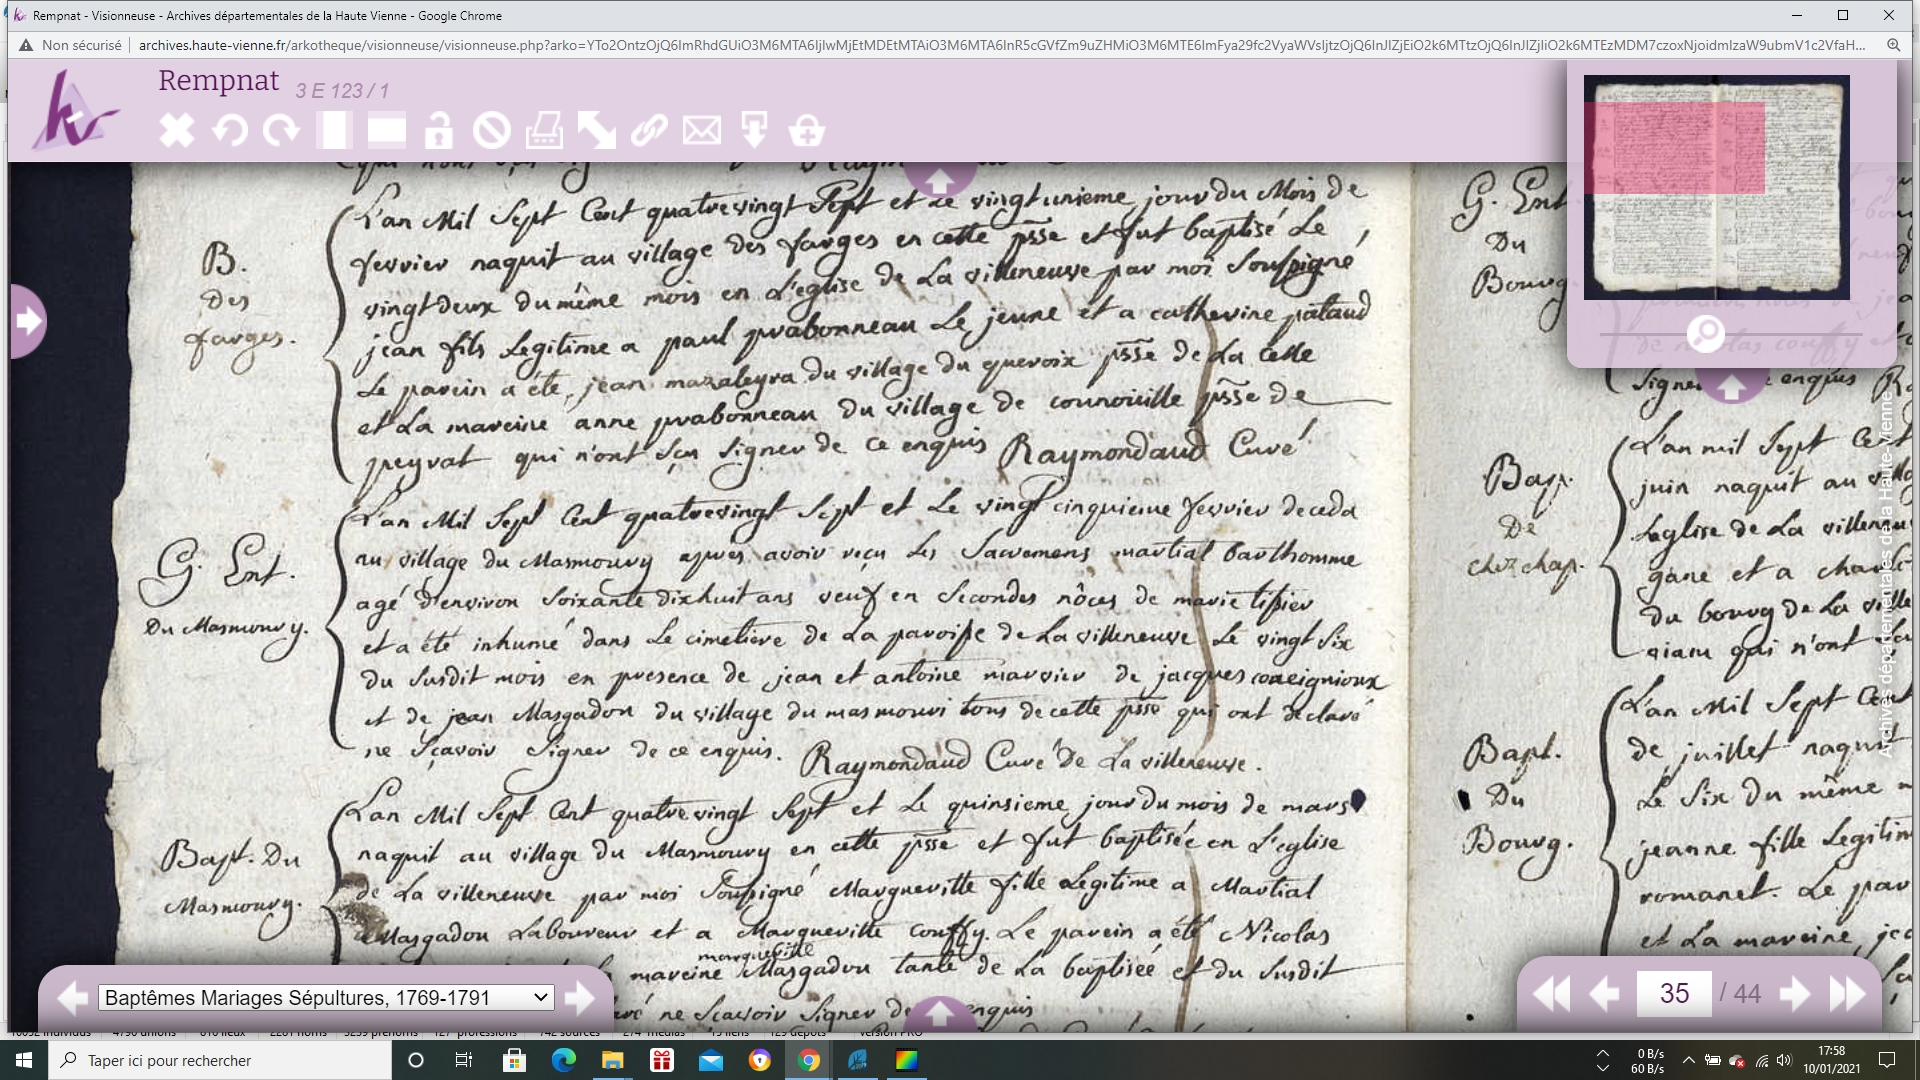 Rempnat - Visionneuse - Archives départementales de la Haute Vienne - Google Chrome
Non sécurisé | archives.haute-vienne.fr/arkotheque/visionneuse/visionneuse.php?arko=
Rempnat 3 E 123 / 1
L'an Mil Sept Cent quatrevingt Sept et le vingtunieme jour du Mois de
B. Des farges.
fevrier naquit au village des farges en cette psse et fut baptisé Le
vingtdeux du même mois en L'eglise de La villeneuve par moi Soussigné
jean fils Legitime a paul prabonneau Le jeune et a catherine pataud
Le parein a été, jean mazaleyra du village du queroix psse de La celle
et La mareine anne prabonneau du village de counouille psse de
peyrat qui n'ont sçu signer de ce enquis Raymondaud Curé
G. Ent. Du Masmoury.
L'an Mil Sept Cent quatrevingt Sept et Le vingt cinquieme fevrier deceda
au village du Masmoury apres avoir reçu Les Sacremens martial barthomme
agé d'environ Soixante dixhuit ans veuf en Secondes nôces de marie tissier
et a été inhumé dans Le cimetière de La paroisse de La villeneuve Le vingt Six
du Susdit mois en presence de jean et antoine marsier de jacques
et de jean Masgadou du village du masmouri tous de cette psse qui ont declaré
ne Sçavoir Signer de ce enquis. Raymondaud Curé de La villeneuve.
Bapt. Du Masmoury.
L'an Mil Sept Cent quatrevingt Sept et Le quinsieme jour du mois de mars
naquit au village du Masmoury en cette psse et fut baptisée en L'eglise
de La villeneuve par moi Soussigné Margueritte fille Legitime a Martial
Masgadou Laboureur et a Margueritte couffy. Le parein a été Nicolas
margueritte
mareine Masgadou tante de La baptisée et du Susdit
ne Scavoir Signer de enquis
G. Ent
Du
Bourg
de nicolas couffy et
enquis
Bap.
De
chez chap.
L'an mil Sept Cent
juin naquit au
Leglise de La villeneu
gane et a
du bourg de La ville
qui n'ont
Bapt.
Du
Bourg.
L'an Mil Sept Cent
de juillet naquit
Le Six du même
jeanne fille Legitim
romanet. Le par
et La mareine
Archives départementales de la Haute-Vienne
Baptêmes Mariages Sépultures, 1769-1791
35 / 44
Taper ici pour rechercher
0 B/s
60 B/s
17:58
10/01/2021